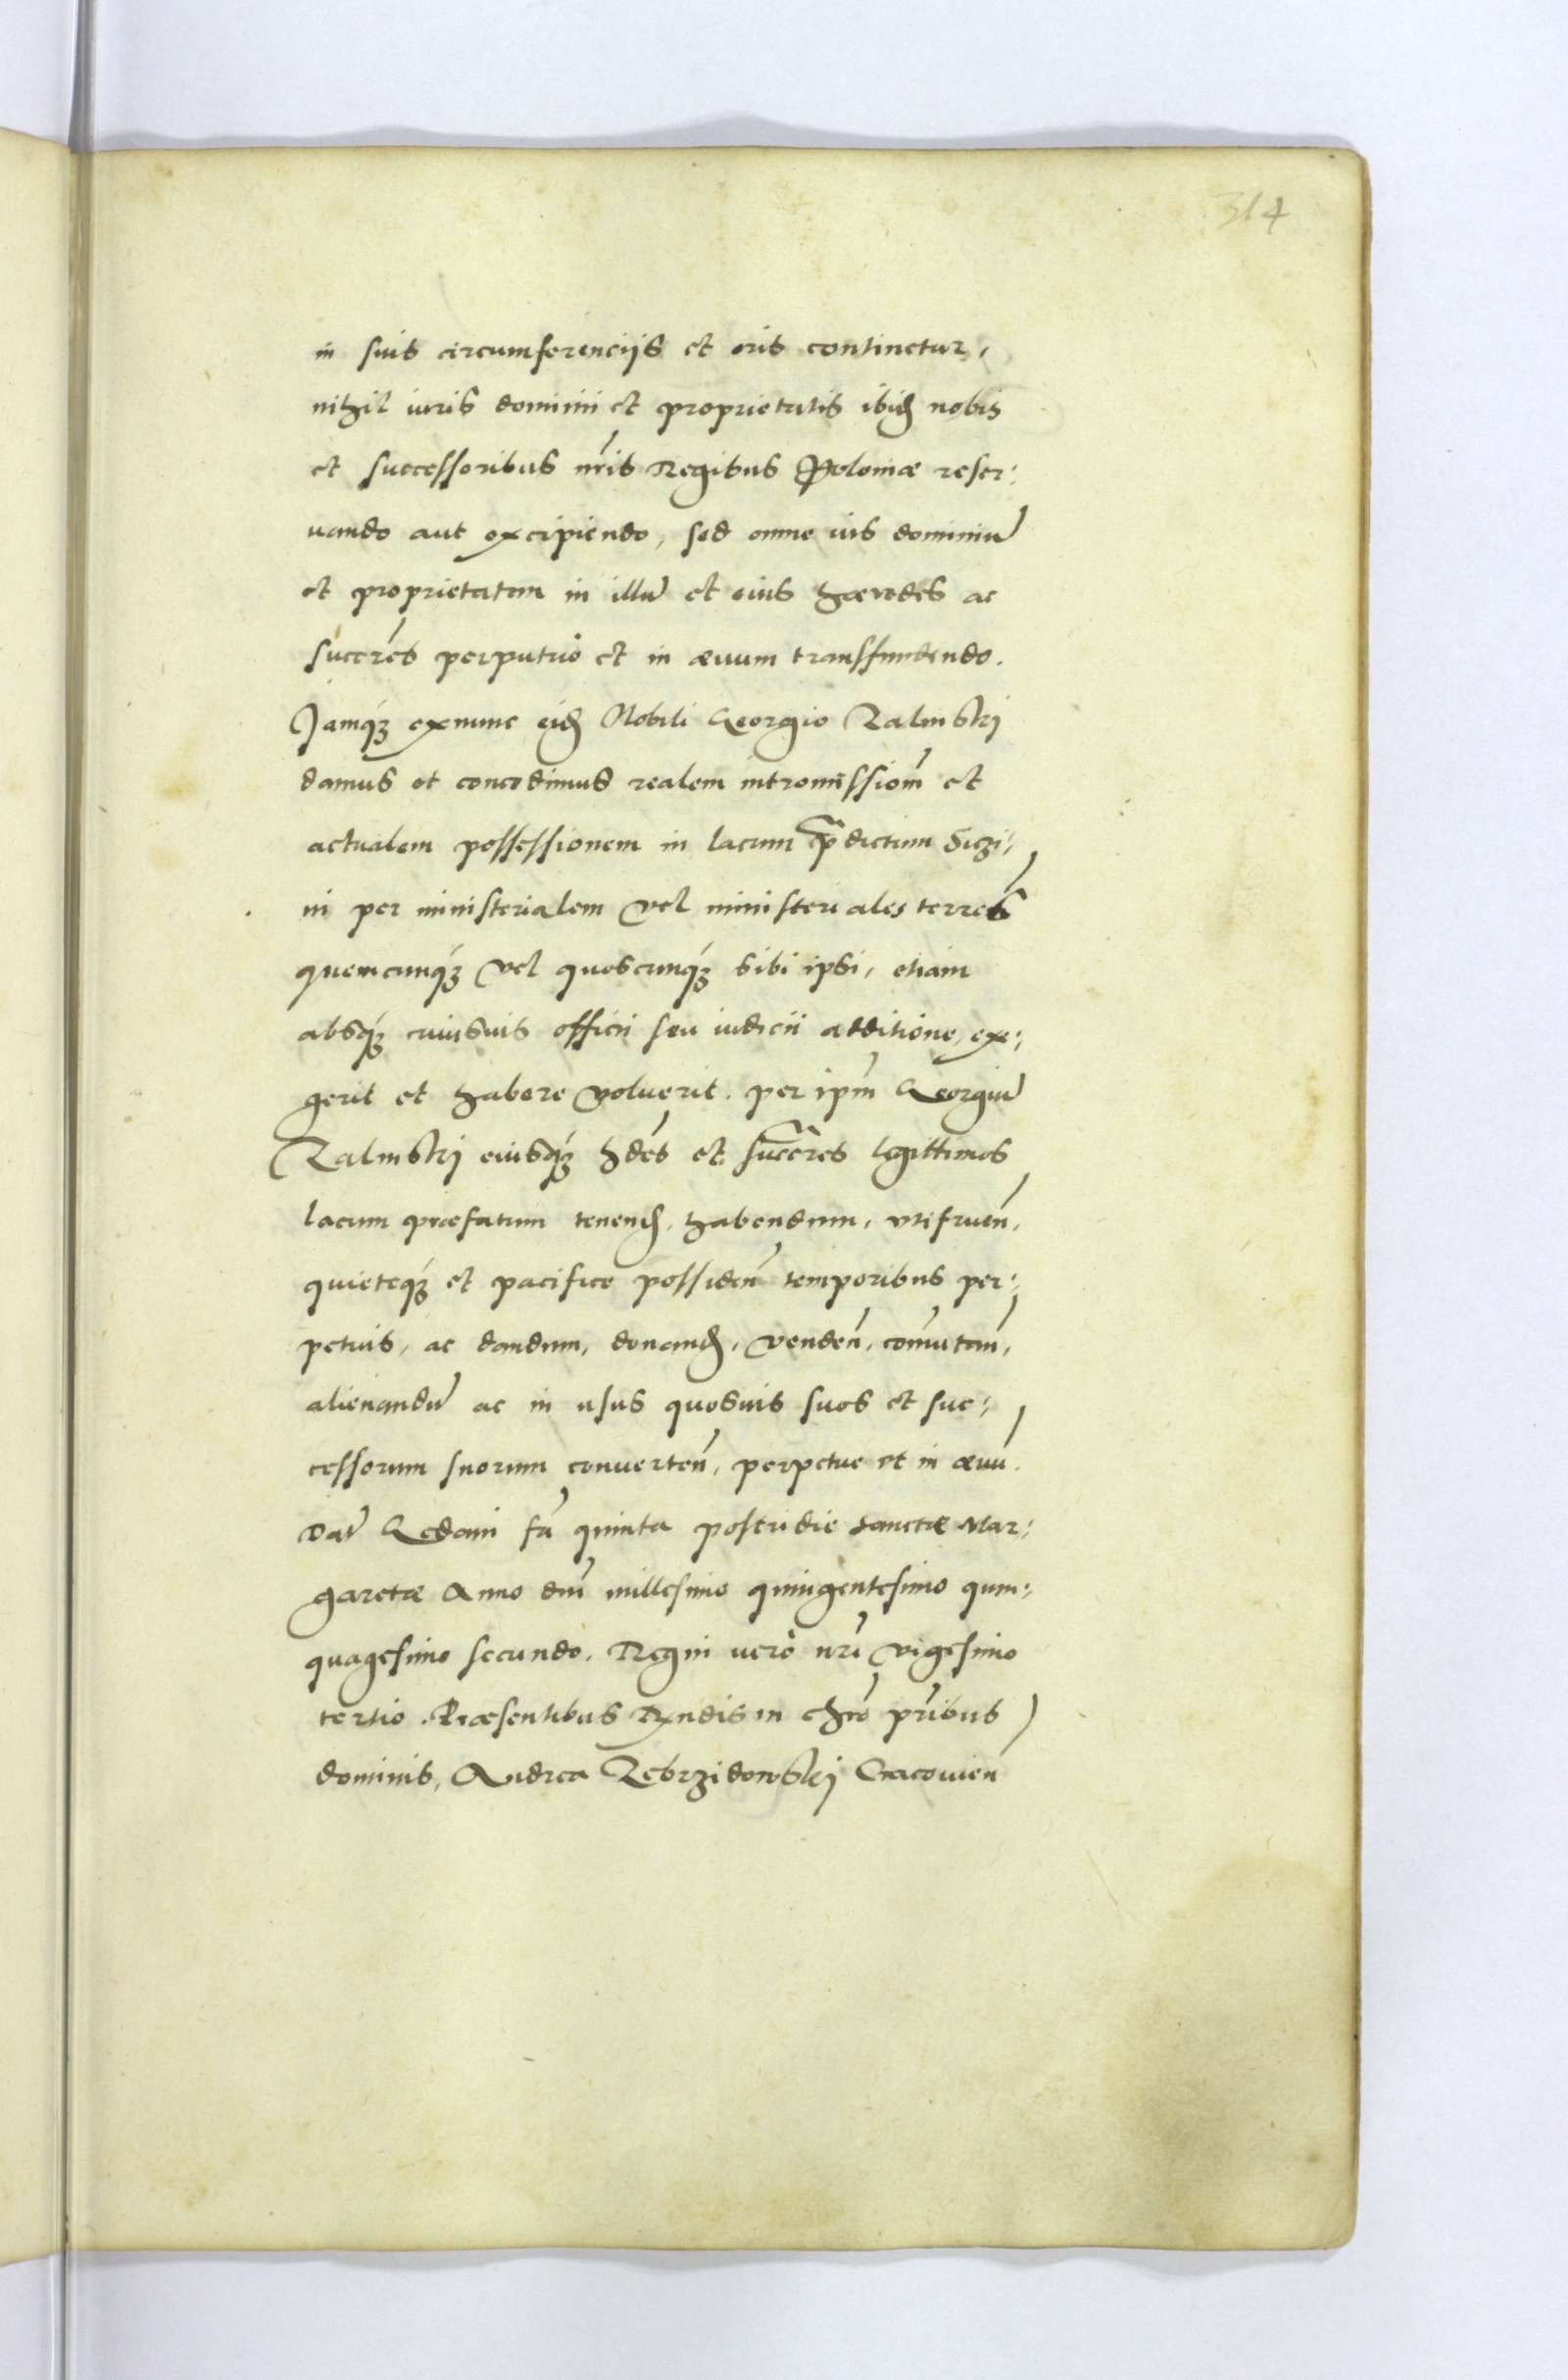 314
in suis circumferencijs et oris continetur,
nihil iuris dominii et proprietatis ibid nobis
et successoribus nris Regibus Poloniæ reser:
uando aut excipiendo, sed omne ius dominiũ
et proprietatem in illũ et eius hæredes ac
succres perpetuo et in æuum transfundendo.
Jamq́ȝ exnunc eid Nobili Georgio Zalinskj
damus et concedimus realem intromissiom̃ et
actualem possessionem in lacum p̃dictum Sizi:
ni per ministerialem vel ministeriales terres
quemcunq́ȝ vel quoscunq́ȝ sibi ipsi, etiam
absq́ȝ cuiusuis officii seu iudicii additione, exe:
gerit et habere voluerit. per ipm̃ Georgiũ
Zalinskj eiusq́ȝ hdes et succres legittimos
lacum præfatum tenend, habendum, vtifruen̄,
quieteq́ȝ et pacifice possiden̄ temporibus per:
petuis, ac dandum, donand, venden̄, com̃utan̄,
alienandũ ac in usus quosuis suos et suc:
cessorum suorum conuerten̄, perpetue et in æuũ.
Dat̃ Gedani fã quinta postridie sanctæ Mar:
garetæ Anno dnĩ millesimo quingentesimo quin:
quagesimo secundo. Regni uerò nrĩ vigesimo
tertio. Præsentibus Rndis in chrõ pr̃ibus
dominis, Andrea Zebrzidowskj Cracouien̄